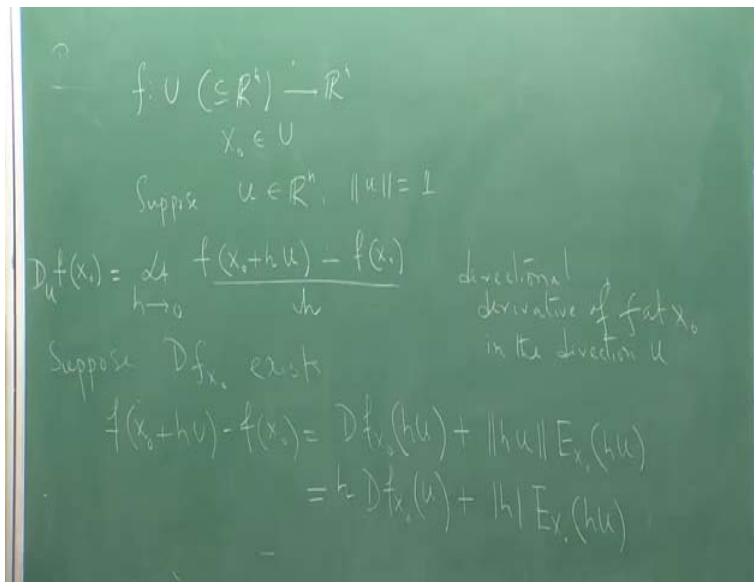 f: U (⊆ ℝⁿ) → ℝⁿ
x₀ ∈ U
Suppose u ∈ ℝⁿ, ||u|| = 1
D_u f(x₀) = Lt_{h→0} (f(x₀+hu) − f(x₀)) / h
directional
derivative of f at x₀
in the direction u
Suppose Df_{x₀} exists
f(x₀+hu) − f(x₀) = Df_{x₀}(hu) + ||hu|| E_{x₀}(hu)
= h Df_{x₀}(u) + |h| E_{x₀}(hu)